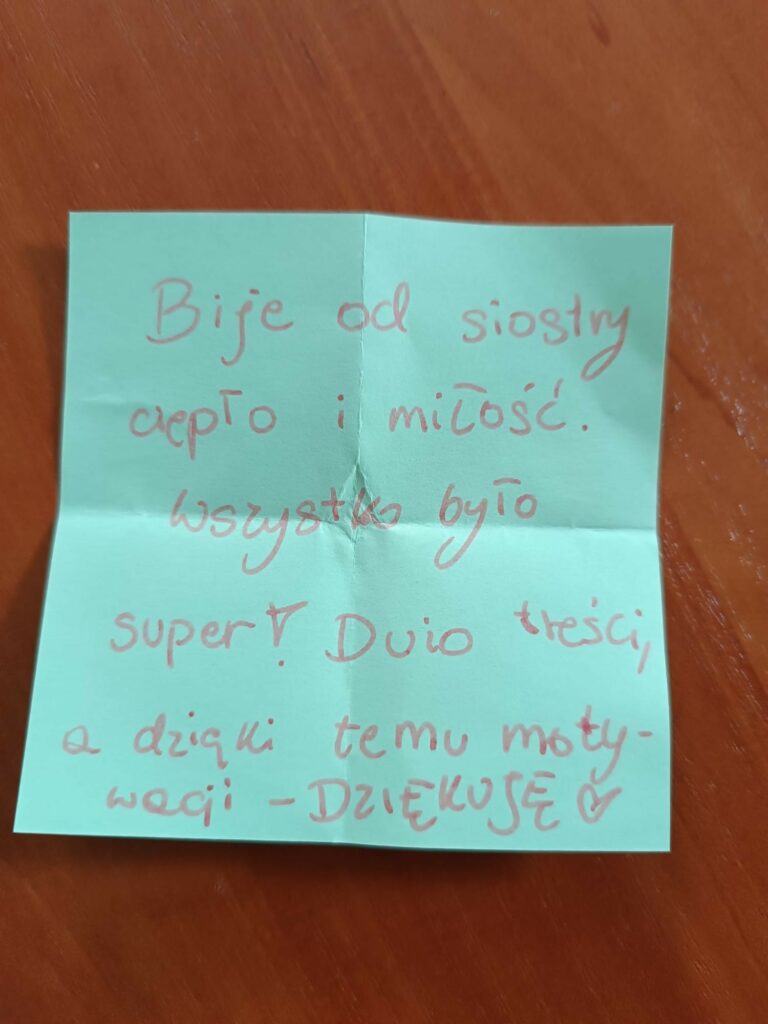 Bije od siostry
ciepło i miłość.
wszystko było
super! Dużo treści,
a dzięki temu moty-
wacji - DZIĘKUJĘ ♡